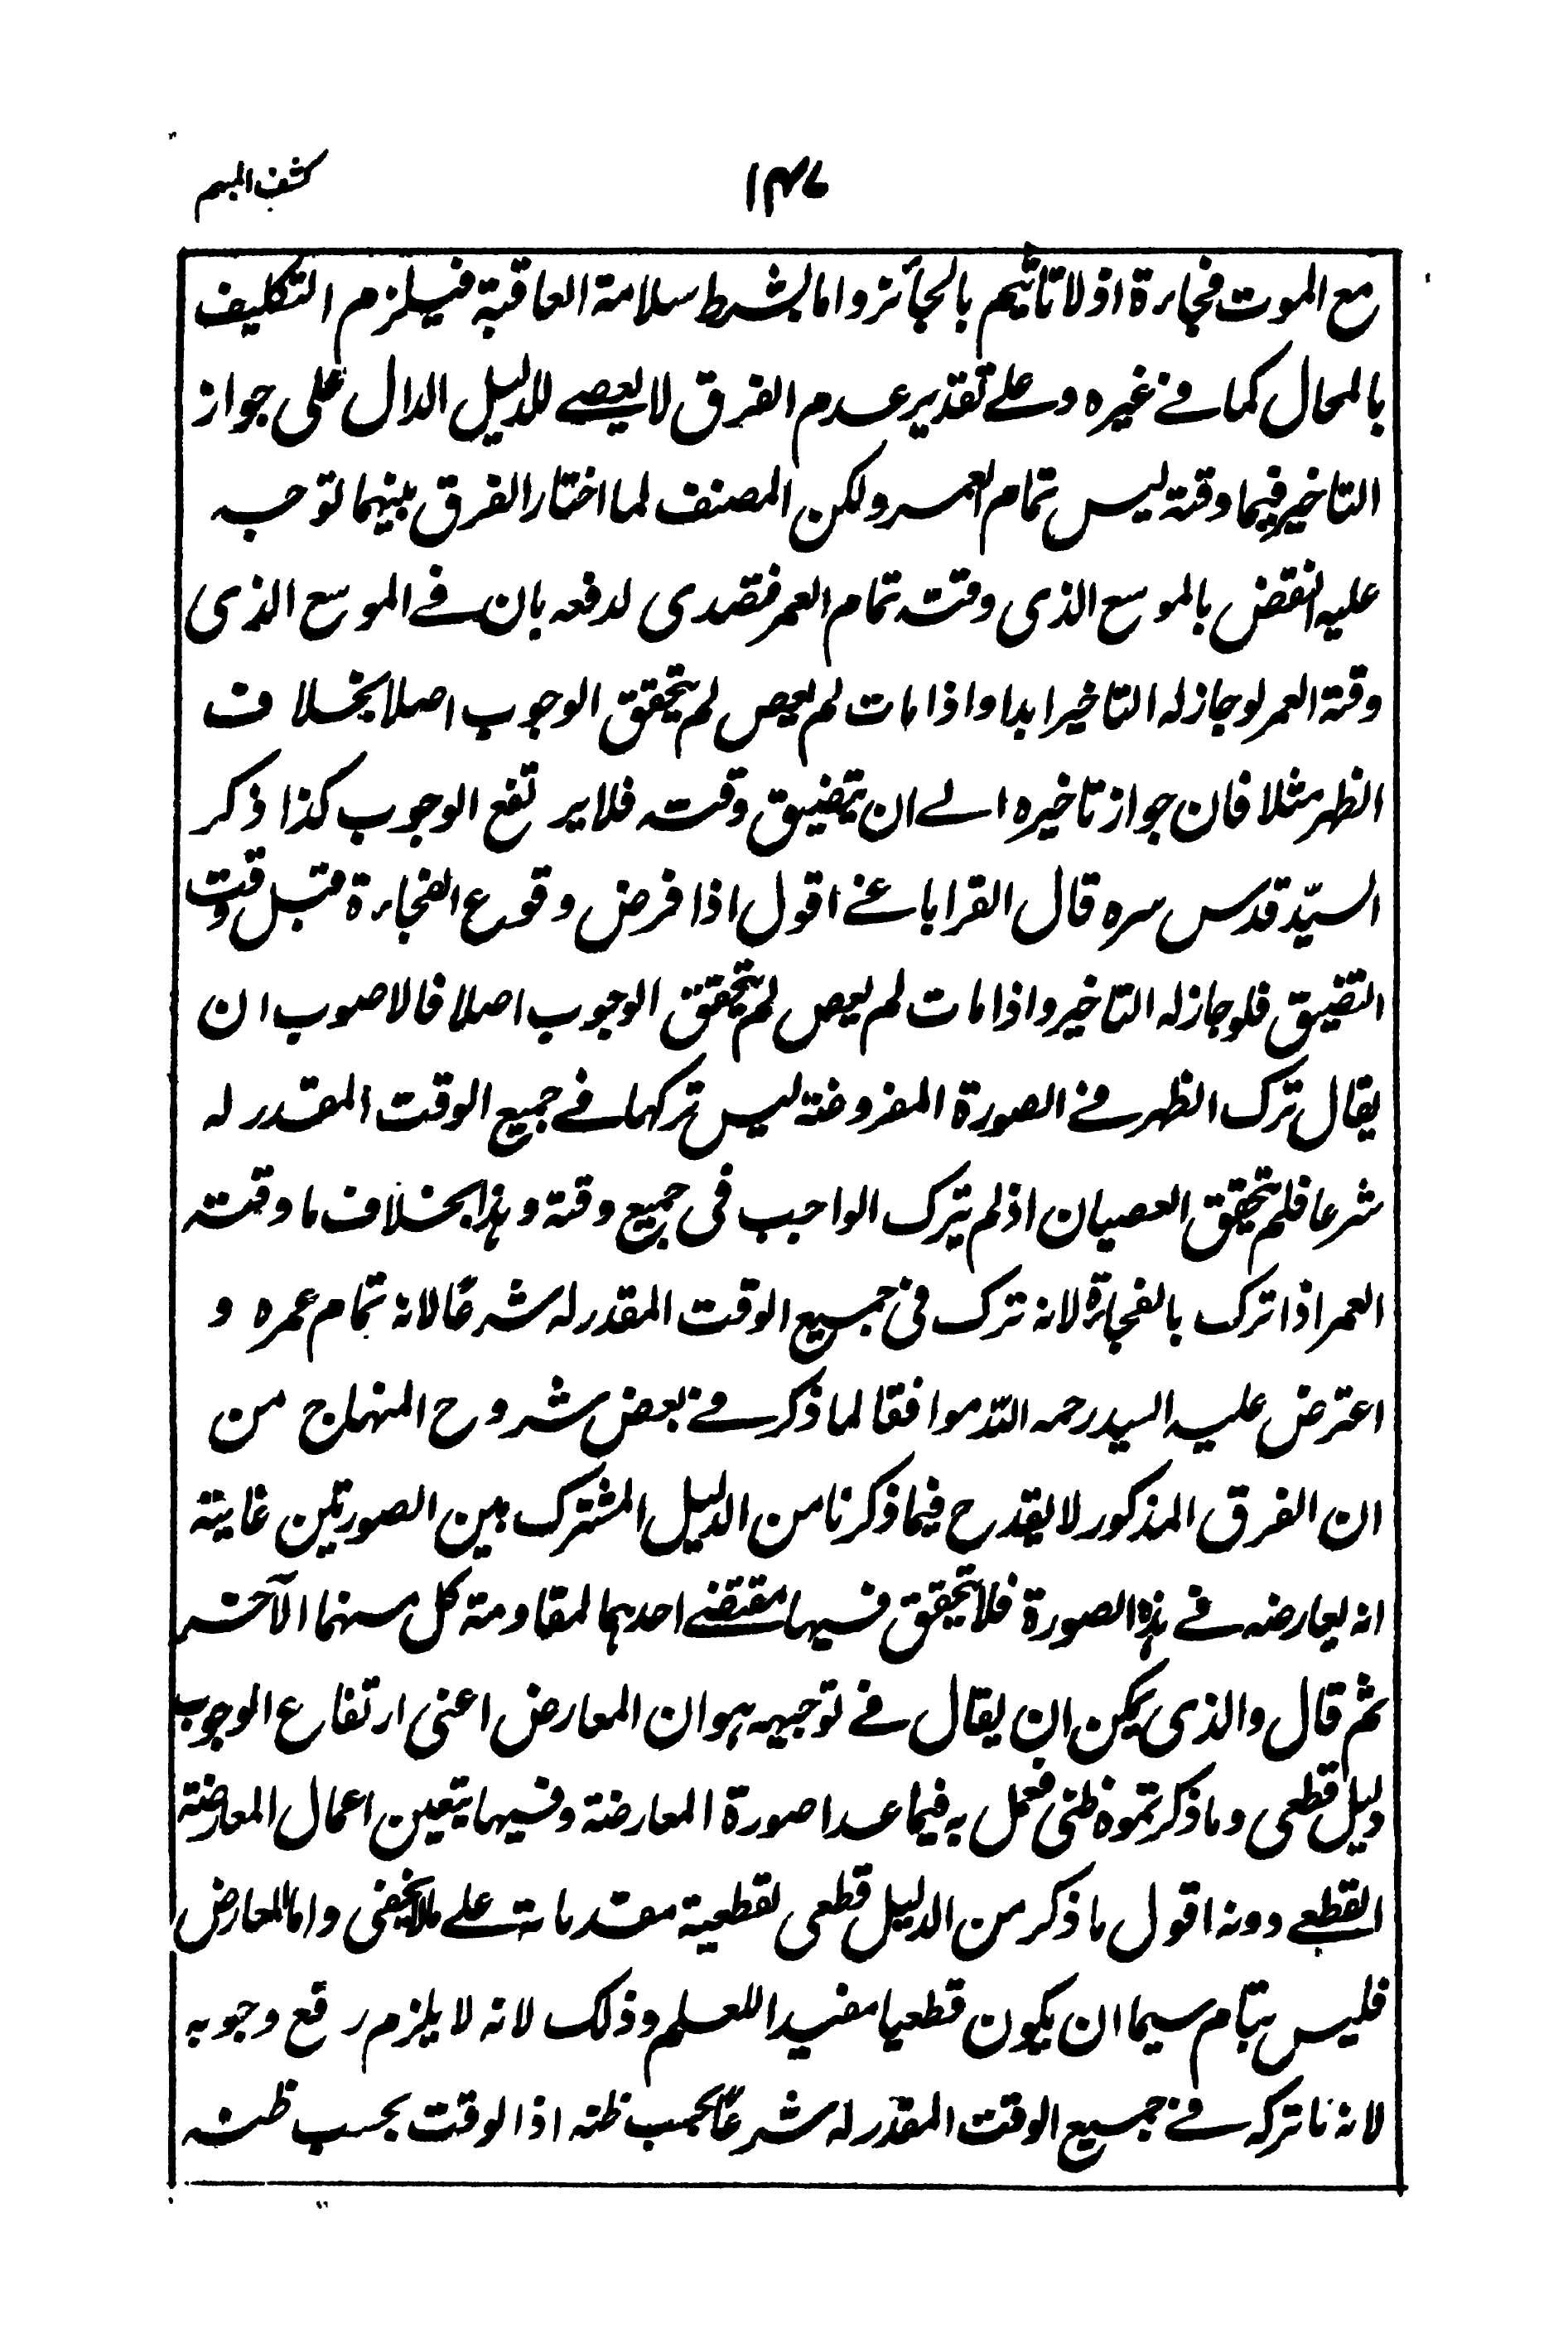 كشف المبهم
١٣٧
مع الموت فجاءة اذ لا تاثيم بالجائز واما بشرط سلامة العاقبة فيلزم التكليف
بالمحال كما في غيره وعلى تقدير عدم الفرق لا يعصى للدليل الدال على جواز
التاخير فيما وقته ليس تمام العمر ولكن المصنف لما اختار الفرق بينهما توجه
عليه النقض بالموسع الذى وقته تمام العمر فتصدى لدفعه بان في الموسع الذى
وقته العمر لو جاز له التاخير ابدا واذا مات لم يعص لم يتحقق الوجوب اصلا بخلاف
الظهر مثلا فان جواز تاخيره الى ان يتضيق وقته فلا يرتفع الوجوب كذا ذكر
السيّد قدس سره قال القراباغي اقول اذا فرض وقوع الفجاءة قبل وقت
التضيق فلو جاز له التاخير واذا مات لم يعص لم يتحقق الوجوب اصلا فالاصوب ان
يقال ترك الظهر في الصورة المفروضة ليس تركها في جميع الوقت المقدر له
شرعا فلم يتحقق العصيان اذ لم يترك الواجب فى جميع وقته وهذا بخلاف ما وقته
العمر اذا ترك بالفجاءة لانه ترك فى جميع الوقت المقدر له شرعًا لانه تمام عمره و
اعترض عليه السيد رحمه الله موافقا لما ذكر في بعض شروح المنهاج من
ان الفرق المذكور لا يقدح فيما ذكرنا من الدليل المشترك بين الصورتين غايته
انه يعارضه في هذه الصورة فلا يتحقق فيها مقتضى احدهما لمقاومة كل منهما الآخر
ثم قال والذى يمكن ان يقال في توجيهه هو ان المعارض اعنى ارتفاع الوجوب
دليل قطعى وما ذكرتموه ظنى فعمل به فيما عدا صورة المعارضة وفيها يتعين اعمال المعارضة
القطعى دونه اقول ما ذكر من الدليل قطعى لقطعية مقدماته على ما لا يخفى واما المعارض
فليس بتام سيما ان يكون قطعيا مفيدا للعلم وذلك لانه لا يلزم رفع وجوبه
لانه ما تركه في جميع الوقت المقدر له شرعًا بحسب ظنه اذا الوقت بحسب ظنه